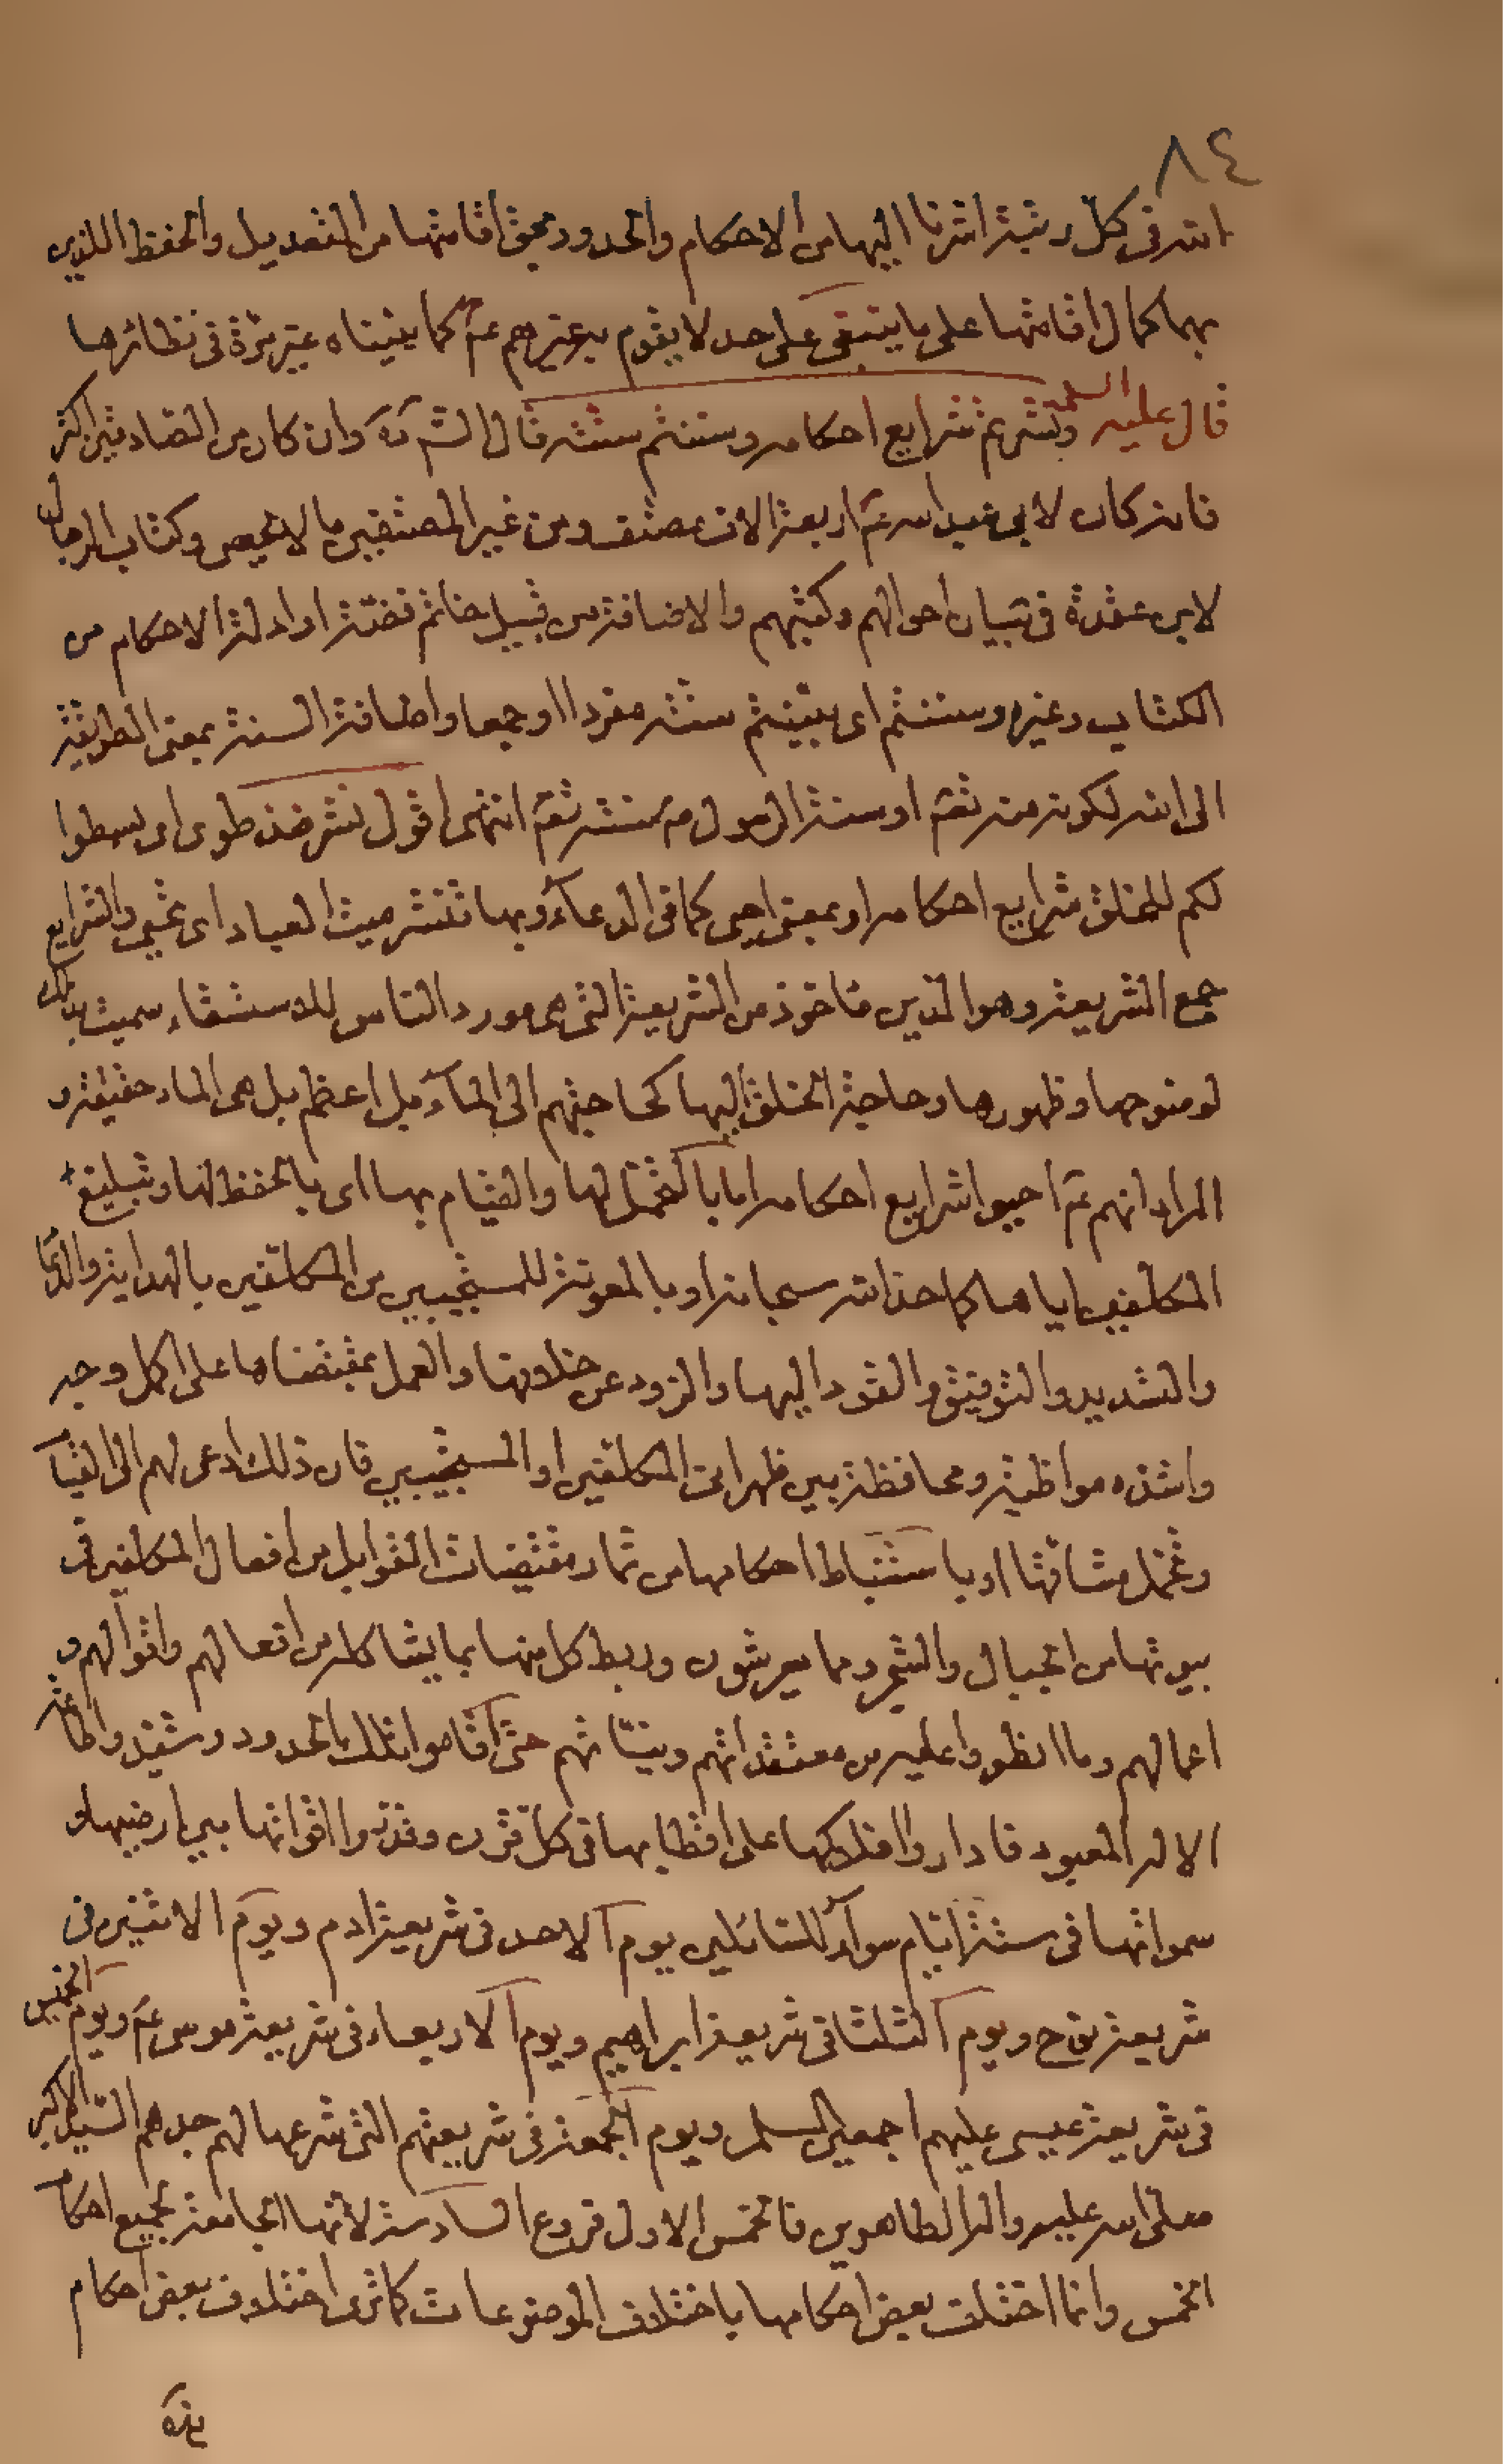 ٨٤
الله في كل رتبة اشرنا اليها من الاحكام والحدود بحق اقامتها من التعديل والحفظ اللذين
بهما كمال اقامتها على ما ينبغي على حد لا يقوم به غيرهم عم كما بيناه غير مرة في نظائرها
قال عليه السلم ونشرتم شرايع احكامه وسننتم سنته قال الش ره وان كان من الصادقين اكثر
فانه كان لابي عبد الله عم اربعة الاف مصنف ومن غير المصنفين ما لا يحصى وكتاب الرجال
لابن عقدة في تبيان احوالهم وكتبهم والاضافة من قبيل خاتم فضة او ادلة الاحكام من
الكتاب وغيره وسننتم اى بينتم سنته مفردا او جمعا واضافة السنة بمعنى الطريقة
الى الله لكونه منه تعم او سنة الرسول ص سنته تعم انتهى اقول نشر ضد طوى اى بسطوا
لكم للخلق شرايع احكامه او بمعنى احيى كما في الدعآء وبها تنشر ميت العباد اى تحيى والشرايع
جمع الشريعة وهو الدين مأخوذ من الشريعة التي هي مورد الناس للاستسقاء سميت بذلك
لوضوحها وظهورها وحاجة الخلق اليها كحاجتهم الى المآء بل اعظم بل هي الماء حقيقة و
المراد انهم عم احيوا شرايع احكامه اما بالتحمل لها والقيام بها اى بالحفظ لها وتبليغ
المكلفين اياها كما حد الله سبحانه او بالمعونة للمستجيبين من المكلفين بالهداية والدعا
والتسديد والتوفيق والقود اليها والذود عن خلافها والعمل بمقتضاها على اكمل وجه
واشده مواظبة ومحافظة بين ظهراني المكلفين او المستجيبين فان ذلك ادعى لهم الى القيا
وتحمل مشاقها او باستنباط احكامها من ثمار مقتضيات القوابل من افعال المكلفين في
بيوتها من الجبال والشجر ومما يعرشون وربط كل منها بما يشاكله من افعالهم واقوالهم و
اعمالهم وما انطووا عليه من معتقداتهم ونياتهم حتى اقاموا بتلك الحدود وشيد واطاعة
الاله المعبود فاداروا افلاكها على اقطابها في كل قرن وقدروا اقواتها بين ارضيها و
سمواتها في ستة ايام سوآء للسائلين يوم الاحد في شريعة ادم ويوم الاثنين في
شريعة نوح ويوم الثلثا في شريعة ابراهيم ويوم الاربعاء في شريعة موسى عم ويوم الخميس
في شريعة عيسى عليهم اجمعين السلم ويوم الجمعة في شريعتهم التي شرعها لهم جدهم السيد الاكبر
صلى الله عليه واله الطاهرين فالخمس الاول فروع السادسة لانها الجامعة لجميع احكام
الخمس وانما اختلفت بعض احكامها باختلاف الموضوعات كما ترى اختلاف بعض احكام
هذه